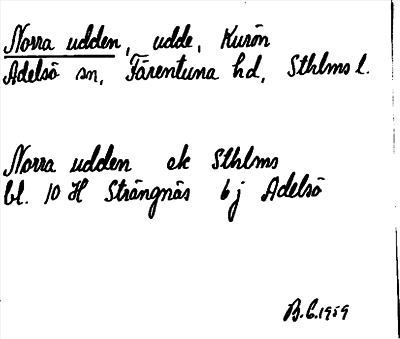 Norra udden, udde, Kurön
Adelsö sn, Färentuna hd, Sthlms l.
Norra udden ek Sthlms
bl. 10 H Strängnäs 6j Adelsö
B.C. 1959